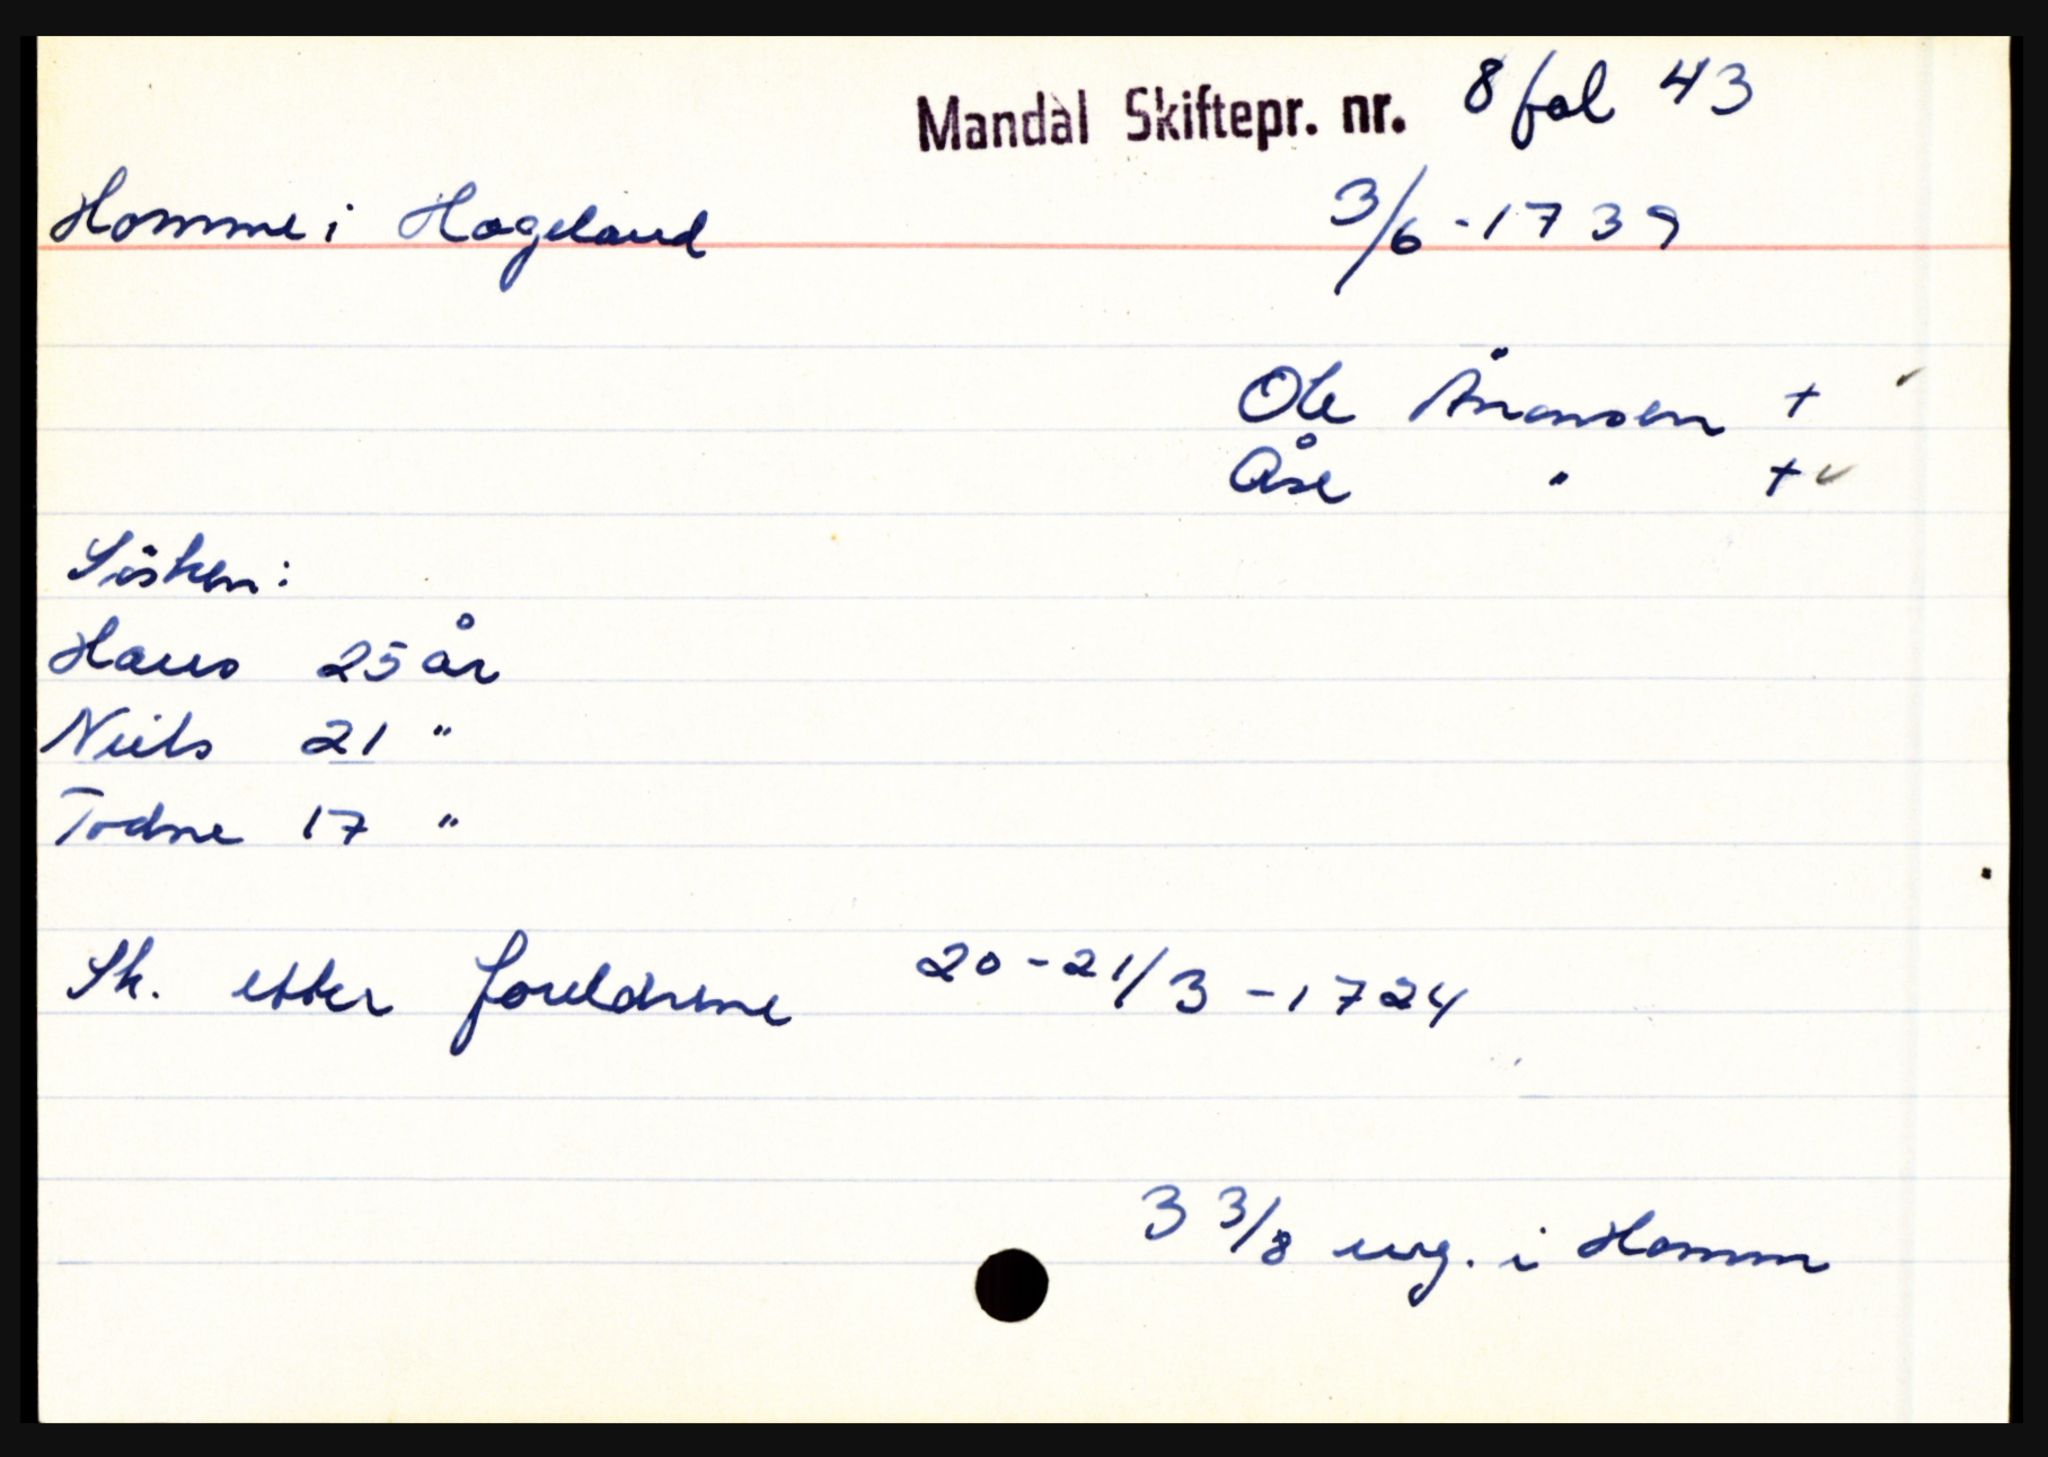 Mandal Skiftepr. nr. 8 fol 43
Homme i Hægeland 3/6 - 1739
Ole Ånonsen +
Åse " +
Sösken:
Hans 25 år
Niels 21 "
Todne 17 "
Sk. etter foreldrene 20-21/3 - 1724
3 3/8 eng. i Homme